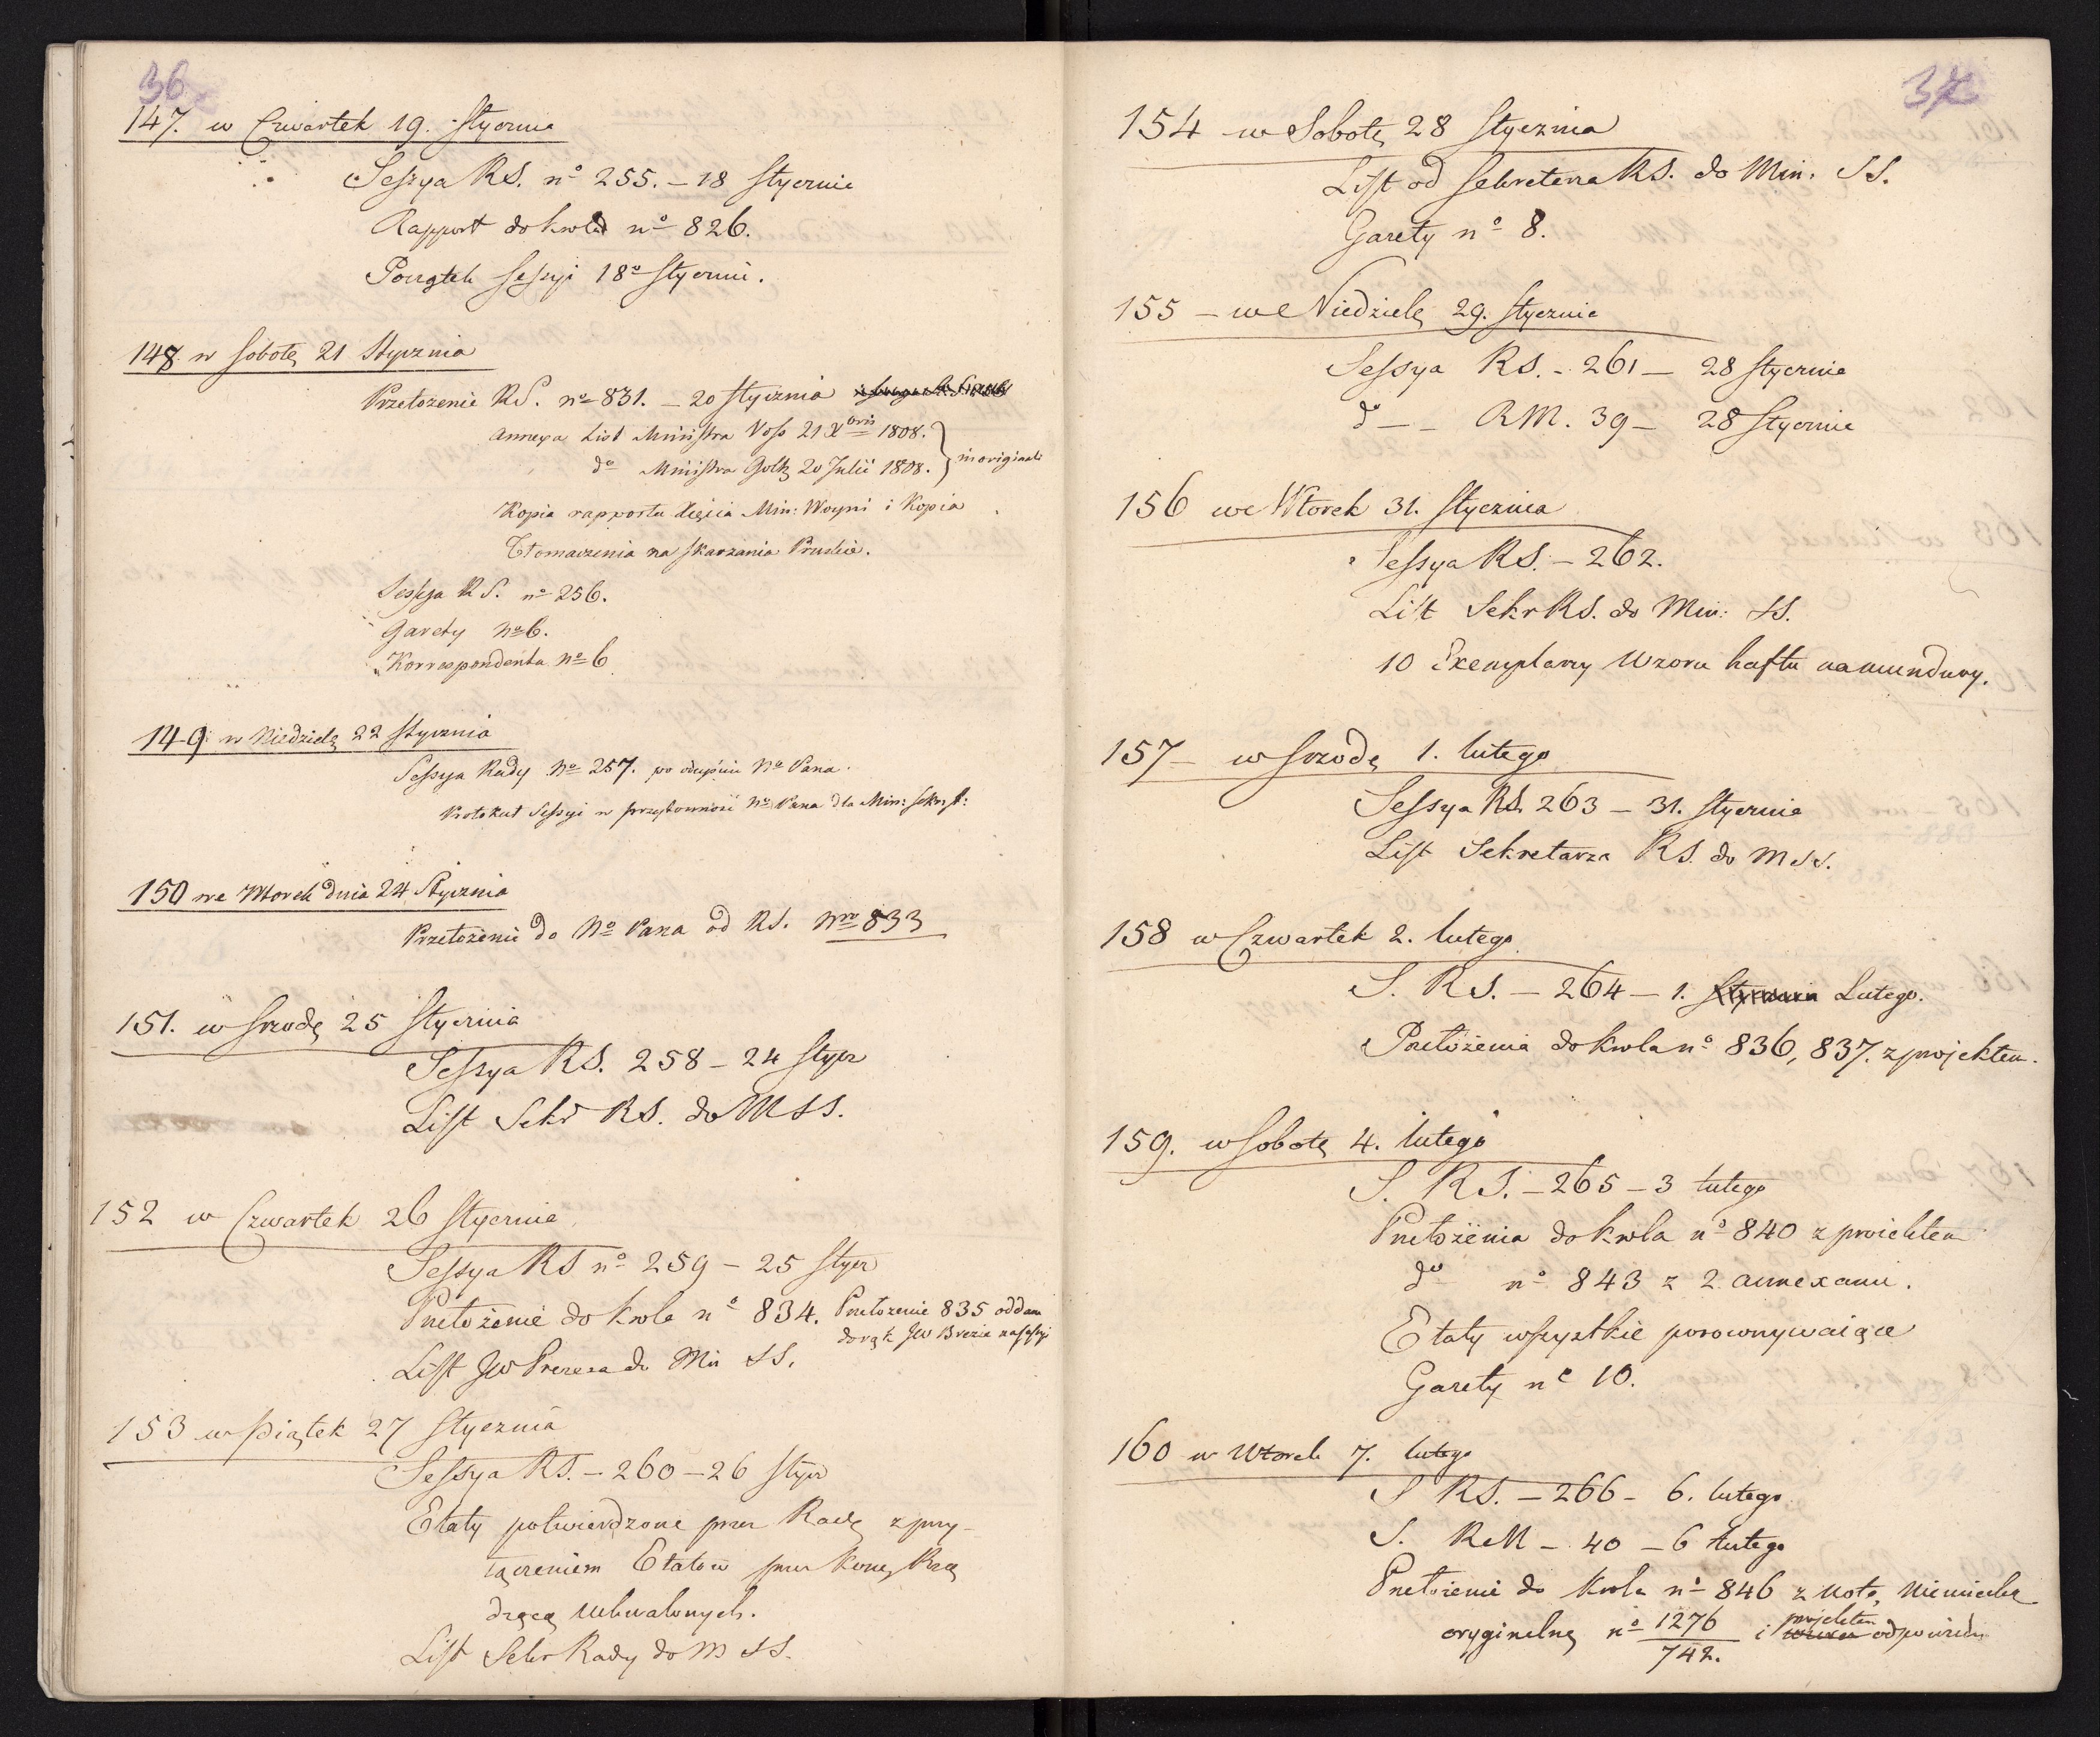 36
147. w Czwartek 19. Stycznia
Sessya RS. no 255. – 18 Stycznia
Rapport do Krola no 826.
Początek Sessyi 18o Stycznia.
148 w Sobotę 21 Stycznia
Przełożenie RS. no 831. – 20 Stycznia
Annexa List Ministra Voss 21 Xbris 1808.
do Ministra Goltz 20 Julii 1808. } in originali
Kopia rapportu Min: Woyni i Kopia
Tłomaczenia na skarżania Pruskie.
Sessya RS. no 256.
Gazety No 6.
Korrespondenta No 6
149 w Niedzielę 22 Stycznia
Sessya Rady No 257. po No Pana.
Protokuł Sessyi w przytomności No Pana dla Min: Sekr St:
150 we Wtorek dnia 24 Stycznia
Przełożenie do No Pana od RS. Nro 833
151. w Srzodę 25 Stycznia
Sessya RS. 258 – 24 Stycz
List Sekr RS. do MSS.
152 w Czwartek 26 Stycznia
Sessya RS no 259 – 25 Stycz
Przełożenie do Krola no 834. Przełożenie 835 oddane
do rąk JW Breze na sessyi
List JW Prezesa do Min SS.
153 w Piątek 27 Stycznia
Sessya RS. – 260 – 26 Stycz
Etaty potwierdzone przez Radę z przy-
łączeniem Etatow przez Kom. Rzą
dzącą uchwalonych.
List Sekr Rady do M SS.
37
154 w Sobotę 28 Stycznia
List od Sekretarza RS. do Min. SS.
Gazety no 8.
155 – w Niedzielę 29. Stycznia
Sessya RS. – 261 – 28 Stycznia
do – – RM. 39 – 28 Stycznia
156 we Wtorek 31. Stycznia
Sessya RS. – 262.
List Sekr RS. do Min: SS.
10 Exemplarzy Wzoru haftu na mundury.
157 – w Srzodę 1. lutego
Sessya RS 263 – 31. Stycznia
List Sekretarza RS. do M SS.
158 w Czwartek 2. lutego
S. RS. – 264 – 1. Stycznia Lutego.
Przełożenia do Krola no 836, 837. z projektem.
159. w Sobotę 4. lutego
S. RS. – 265 – 3 lutego
Przełożenia do Krola no 840 z proiektem
do no 843 z 2 annexami.
Etaty wszystkie porownywaiące
Gazety no 10.
160 w Wtorek 7. lutego
S RS. – 266 – 6. lutego
S. RM – 40 – 6 lutego
Przełożenie do Krola no 846 z notą Niemiecką
oryginalną no 1276/742. i projektem odpowiedzi